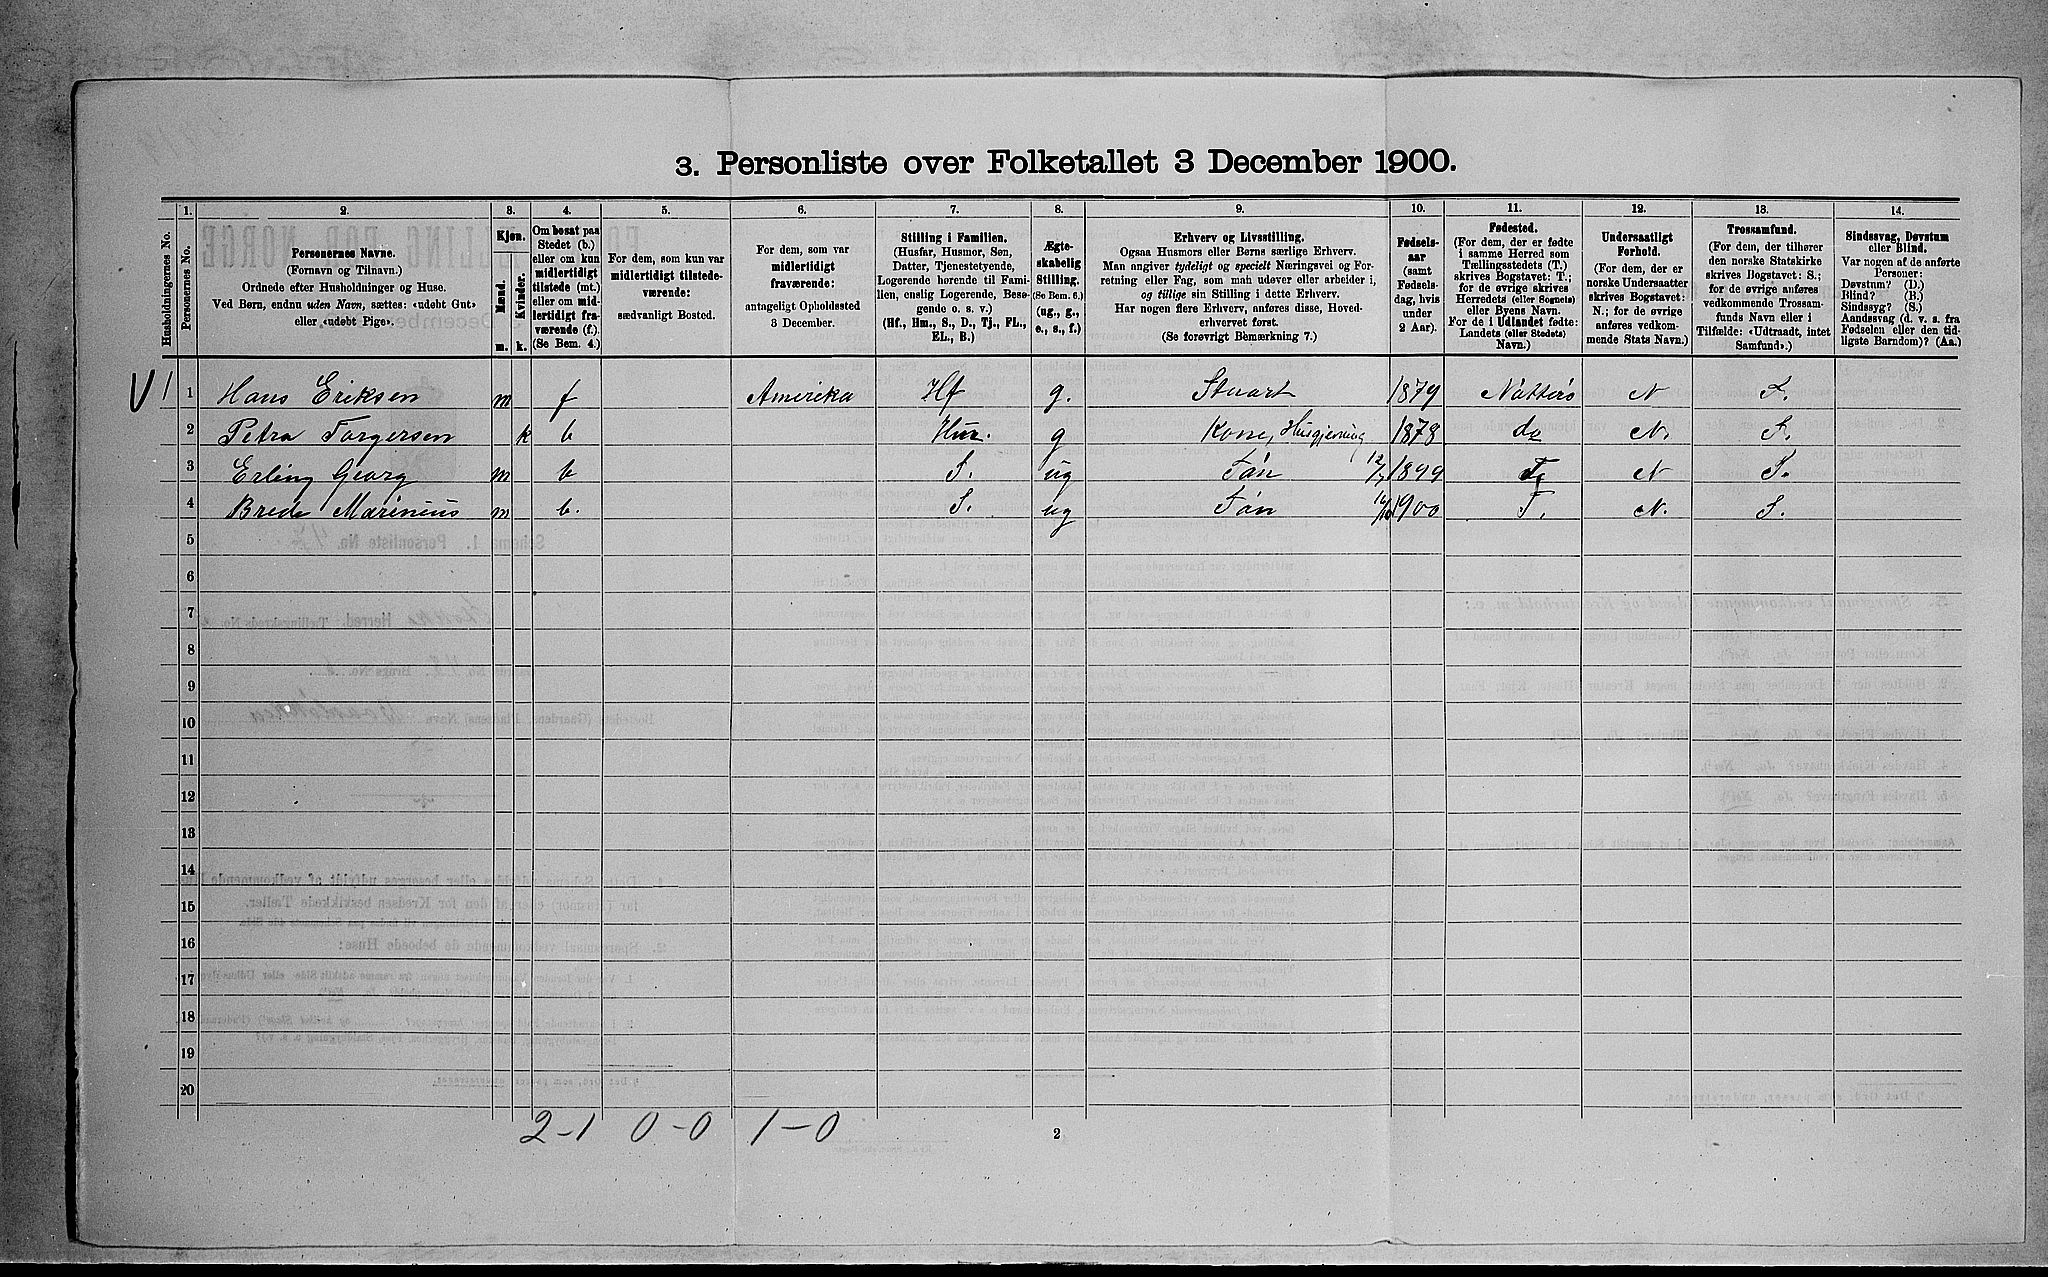 3. Personliste over Folketallet 3 December 1900.
1. 2. 3. 4. 5. 6. 7. 8. 9. 10. 11. 12. 13. 14.
Husholdningernes No.
Personernes No.
Personernes Navne.
(Fornavn og Tilnavn.)
Ordnede efter Husholdninger og Huse.
Ved Børn, endnu uden Navn, sættes: «udøbt Gut»
eller «udøbt Pige».
Kjøn.
Mænd. Kvinder.
m. k.
Om bosat paa
Stedet (b.)
eller om kun
midlertidigt
tilstede (mt.)
eller om mid-
lertidigt fra-
værende (f.)
(Se Bem. 4.)
For dem, som kun var
midlertidigt tilstede-
værende:
sædvanligt Bosted.
For dem, som var
midlertidigt
fraværende:
antageligt Opholdssted
3 December.
Stilling i Familien.
(Husfar, Husmor, Søn,
Datter, Tjenestetyende,
Logerende hørende til Fami-
lien, enslig Logerende, Besø-
gende o. s. v.)
(Hf., Hm., S., D., Tj., FL.,
EL., B.)
Ægte-
skabelig
Stilling.
(Se Bem. 6.)
(ug., g.,
e., s., f.)
Erhverv og Livsstilling.
Ogsaa Husmors eller Børns særlige Erhverv.
Man angiver tydeligt og specielt Næringsvei og For-
retning eller Fag, som man udøver eller arbeider i,
og tillige sin Stilling i dette Erhverv.
Har nogen flere Erhverv, anføres disse, Hoved-
erhvervet først.
(Se forøvrigt Bemærkning 7.)
Fødsels-
aar
(samt
Fødsels-
dag, hvis
under
2 Aar).
Fødested.
(For dem, der er fødte
i samme Herred som
Tællingsstedets (T.)
skrives Bogstavet: T.;
for de øvrige skrives
Herredets (eller Sognets)
eller Byens Navn.
For de i Udlandet fødte:
Landets (eller Stedets)
Navn.)
Undersaatligt
Forhold.
(For dem, der er
norske Undersaatter
skrives Bogstavet:
N.; for de øvrige
anføres vedkom-
mende Stats Navn.)
Trossamfund.
(For dem, der tilhører
den norske Statskirke
skrives Bogstavet: S.;
for de øvrige anføres
vedkommende Trossam-
funds Navn eller i
Tilfælde: «Udtraadt, intet
Samfund».)
Sindssvag, Døvstum
eller Blind.
Var nogen af de anførte
Personer:
Døvstum? (D.)
Blind? (B.)
Sindssyg? (S.)
Aandssvag (d. v. s. fra
Fødselen eller den tid-
ligste Barndom)? (Aa.)
V 1 1 Hans Eriksen m f Amerika Hf g. Stuart 1879 Nøtterø N S.
2 Petra Torgersen k b Hus. g Kone, Husgjerning 1878 do N. S.
3 Erling Georg m b S. ug Søn 12/7 1899 T N S.
4 Brede Marinius m b. S. ug Søn 1900 T. N. S.
5
6
7
8
9
10
11
12
13
14
15
16
17
18
19
20
2-1 0-0 1-0
2